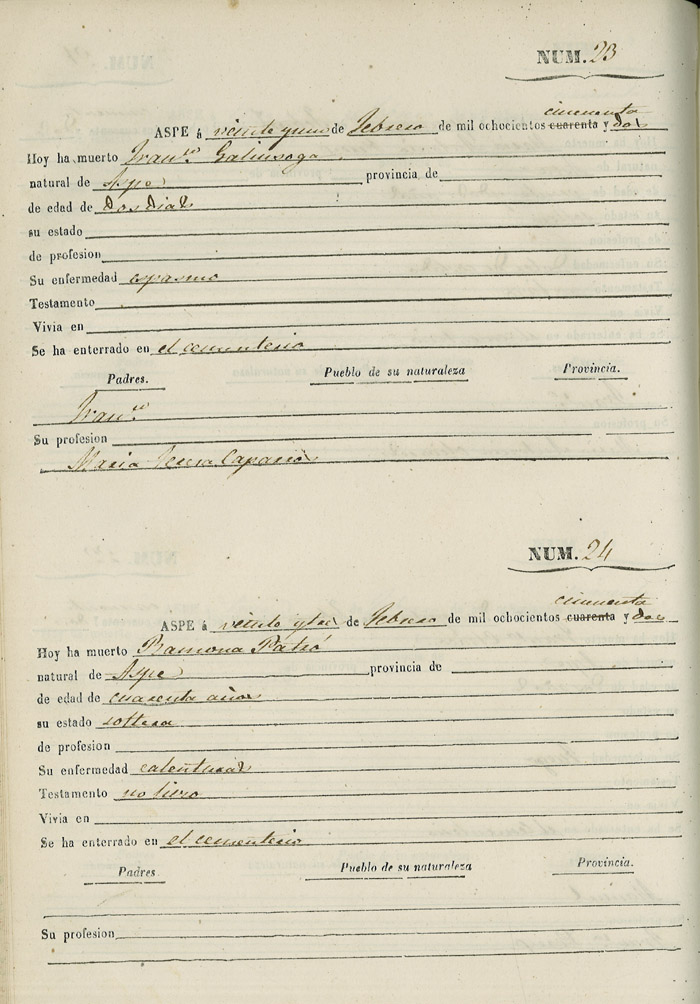 NUM. 23
cincuenta
ASPE á veinte y uno de Febrero de mil ochocientos cuarenta y dos
Hoy ha muerto Fran.co Galinsoga
natural de Aspe provincia de
de edad de dos dias
su estado
de profesion
Su enfermedad espasmo
Testamento
Vivia en
Se ha enterrado en el cementerio
Padres. Pueblo de su naturaleza Provincia.
Fran.co
Su profesion
Maria
NUM. 24
cincuenta
ASPE á veinte y tres de Febrero de mil ochocientos cuarenta y dos
Hoy ha muerto Ramona
natural de Aspe provincia de
de edad de cuarenta años
su estado soltera
de profesion
Su enfermedad calenturas
Testamento no hizo
Vivia en
Se ha enterrado en el cementerio
Padres Pueblo de su naturaleza Provincia.
Su profesion